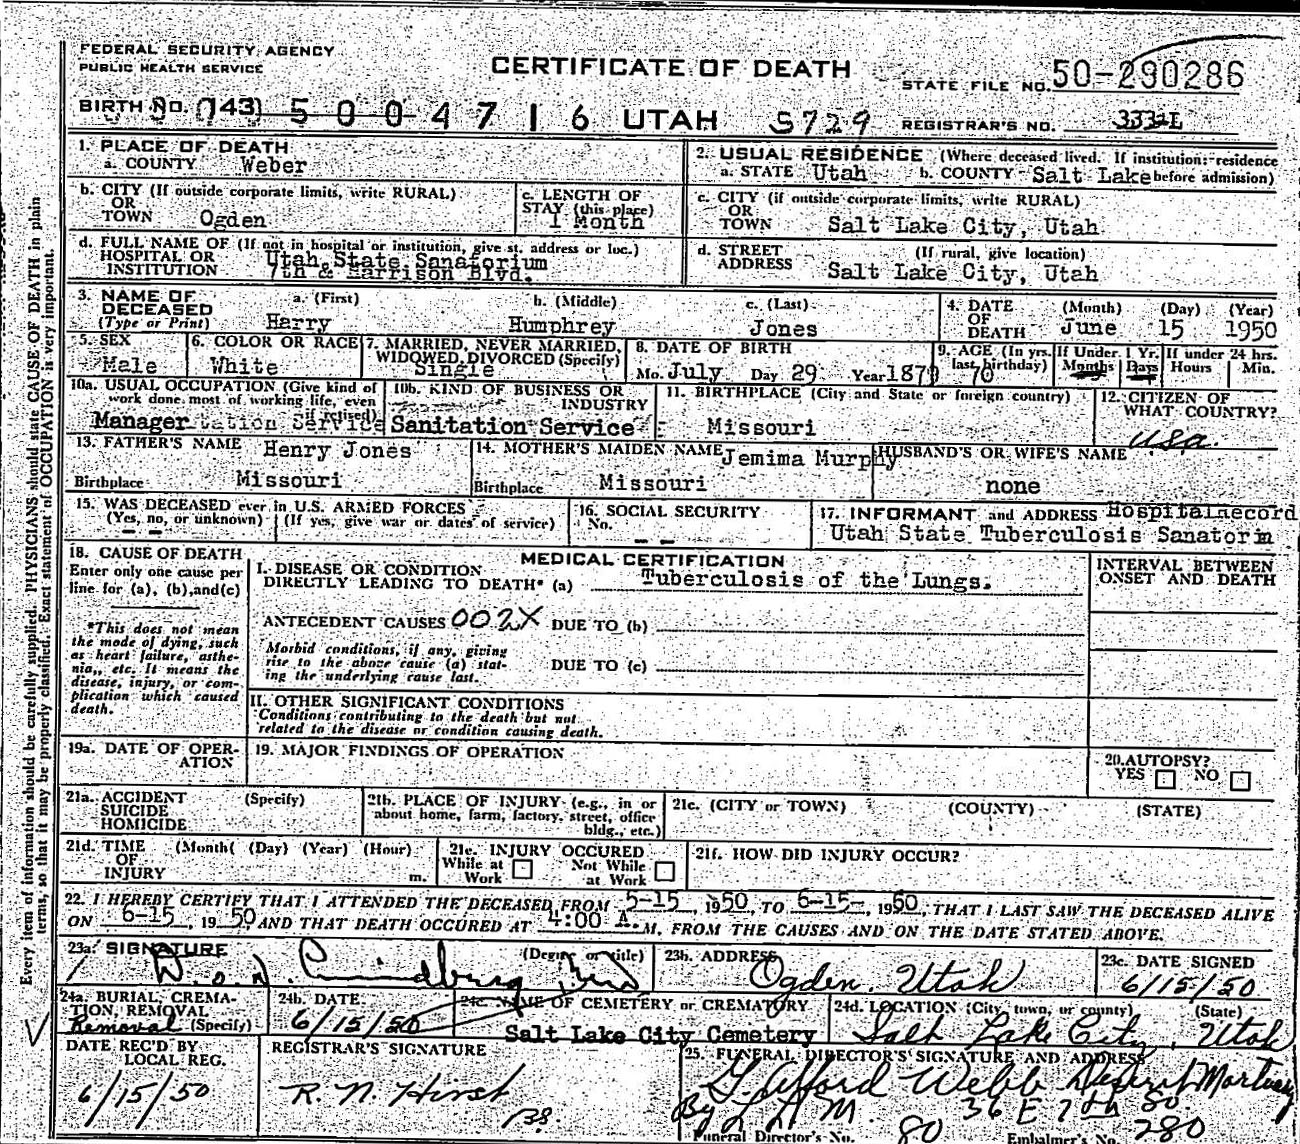 FEDERAL SECURITY AGENCY
PUBLIC HEALTH SERVICE
CERTIFICATE OF DEATH
STATE FILE NO. 50-290286
BIRTH NO. (143) 5 0 0 4 7 1 6 UTAH S729 REGISTRAR'S NO.
1. PLACE OF DEATH
a. COUNTY Weber
2. USUAL RESIDENCE (Where deceased lived. If institution: residence
a. STATE Utah b. COUNTY Salt Lake before admission)
b. CITY (If outside corporate limits, write RURAL)
OR
TOWN Ogden
c. LENGTH OF
STAY (this place)
1 Month
c. CITY (if outside corporate limits, write RURAL)
OR
TOWN Salt Lake City, Utah
d. FULL NAME OF (If not in hospital or institution, give st. address or loc.)
HOSPITAL OR Utah State Sanatorium
INSTITUTION 7th & Harrison Blvd.
d. STREET (If rural, give location)
ADDRESS Salt Lake City, Utah
3. NAME OF a. (First) b. (Middle) c. (Last)
DECEASED
(Type or Print) Harry Humphrey Jones
4. DATE (Month) (Day) (Year)
OF
DEATH June 15 1950
5. SEX
Male
6. COLOR OR RACE
White
7. MARRIED, NEVER MARRIED,
WIDOWED, DIVORCED (Specify)
Single
8. DATE OF BIRTH
Mo. July Day 29 Year 1879
9. AGE (In yrs. If Under 1 Yr. If under 24 hrs.
last birthday) 70 Months Days Hours Min.
10a. USUAL OCCUPATION (Give kind of
work done most of working life, even
if retired)
Manager tation Service
10b. KIND OF BUSINESS OR
INDUSTRY
Sanitation Service
11. BIRTHPLACE (City and State or foreign country)
Missouri
12. CITIZEN OF
WHAT COUNTRY?
USA.
13. FATHER'S NAME Henry Jones
Birthplace Missouri
14. MOTHER'S MAIDEN NAME Jemima Murphy
Birthplace Missouri
HUSBAND'S OR WIFE'S NAME
none
15. WAS DECEASED ever in U.S. ARMED FORCES
(Yes, no, or unknown) (If yes, give war or dates of service)
- -
16. SOCIAL SECURITY
No.
- -
17. INFORMANT and ADDRESS Hospital Record
Utah State Tuberculosis Sanatorim
18. CAUSE OF DEATH
Enter only one cause per
line for (a), (b), and (c)
*This does not mean
the mode of dying, such
as heart failure, asthe-
nia, etc. It means the
disease, injury, or com-
plication which caused
death.
MEDICAL CERTIFICATION
I. DISEASE OR CONDITION
DIRECTLY LEADING TO DEATH* (a) Tuberculosis of the Lungs.
ANTECEDENT CAUSES 002X DUE TO (b)
Morbid conditions, if any, giving
rise to the above cause (a) stat-
ing the underlying cause last.
DUE TO (c)
II. OTHER SIGNIFICANT CONDITIONS
Conditions contributing to the death but not
related to the disease or condition causing death.
INTERVAL BETWEEN
ONSET AND DEATH
19a. DATE OF OPER-
ATION
19. MAJOR FINDINGS OF OPERATION
20. AUTOPSY?
YES NO
21a. ACCIDENT (Specify)
SUICIDE
HOMICIDE
21b. PLACE OF INJURY (e.g., in or
about home, farm, factory, street, office
bldg., etc.)
21c. (CITY or TOWN) (COUNTY) (STATE)
21d. TIME (Month( (Day) (Year) (Hour)
OF
INJURY m.
21e. INJURY OCCURED
While at Not While
Work at Work
21f. HOW DID INJURY OCCUR?
22. I HEREBY CERTIFY THAT I ATTENDED THE DECEASED FROM 5-15, 1950 TO 6-15-, 1950, THAT I LAST SAW THE DECEASED ALIVE
ON 6-15, 1950, AND THAT DEATH OCCURED AT 4:00 A. M, FROM THE CAUSES AND ON THE DATE STATED ABOVE.
23a. SIGNATURE (Degree or title)
Lindberg MD
23b. ADDRESS
Ogden, Utah
23c. DATE SIGNED
6/15/50
24a. BURIAL, CREMA-
TION, REMOVAL
Removal (Specify)
24b. DATE
6/15/50
24c. NAME OF CEMETERY or CREMATORY
Salt Lake City Cemetery
24d. LOCATION (City, town, or county) (State)
Salt Lake City, Utah
DATE REC'D BY
LOCAL REG.
6/15/50
REGISTRAR'S SIGNATURE
R. N. Hirst
25. FUNERAL DIRECTOR'S SIGNATURE AND ADDRESS
Gifford Webb Deseret Mortuary
By 36 E 7th So.
Funeral Director's No. 80 Embalmer's No. 280
Every item of information should be carefully supplied. PHYSICIANS should state CAUSE OF DEATH in plain
terms, so that it may be properly classified. Exact statement of OCCUPATION is very important.